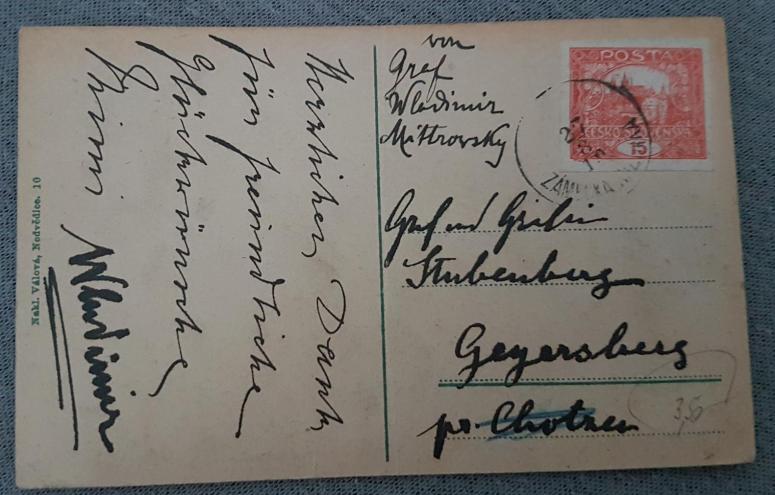 Herzlichen Dank
für freundliche
Glückwünsche,
Wladimir
Nakl. Válová, Nedvědice. 10
von
Graf
Wladimir
Mittrovsky
POŠTA
ČESKO-SLOVENSKÁ
15
Graf und Gräfin
Stubenberg
Geyersberg
pr. Chotzen
3,50